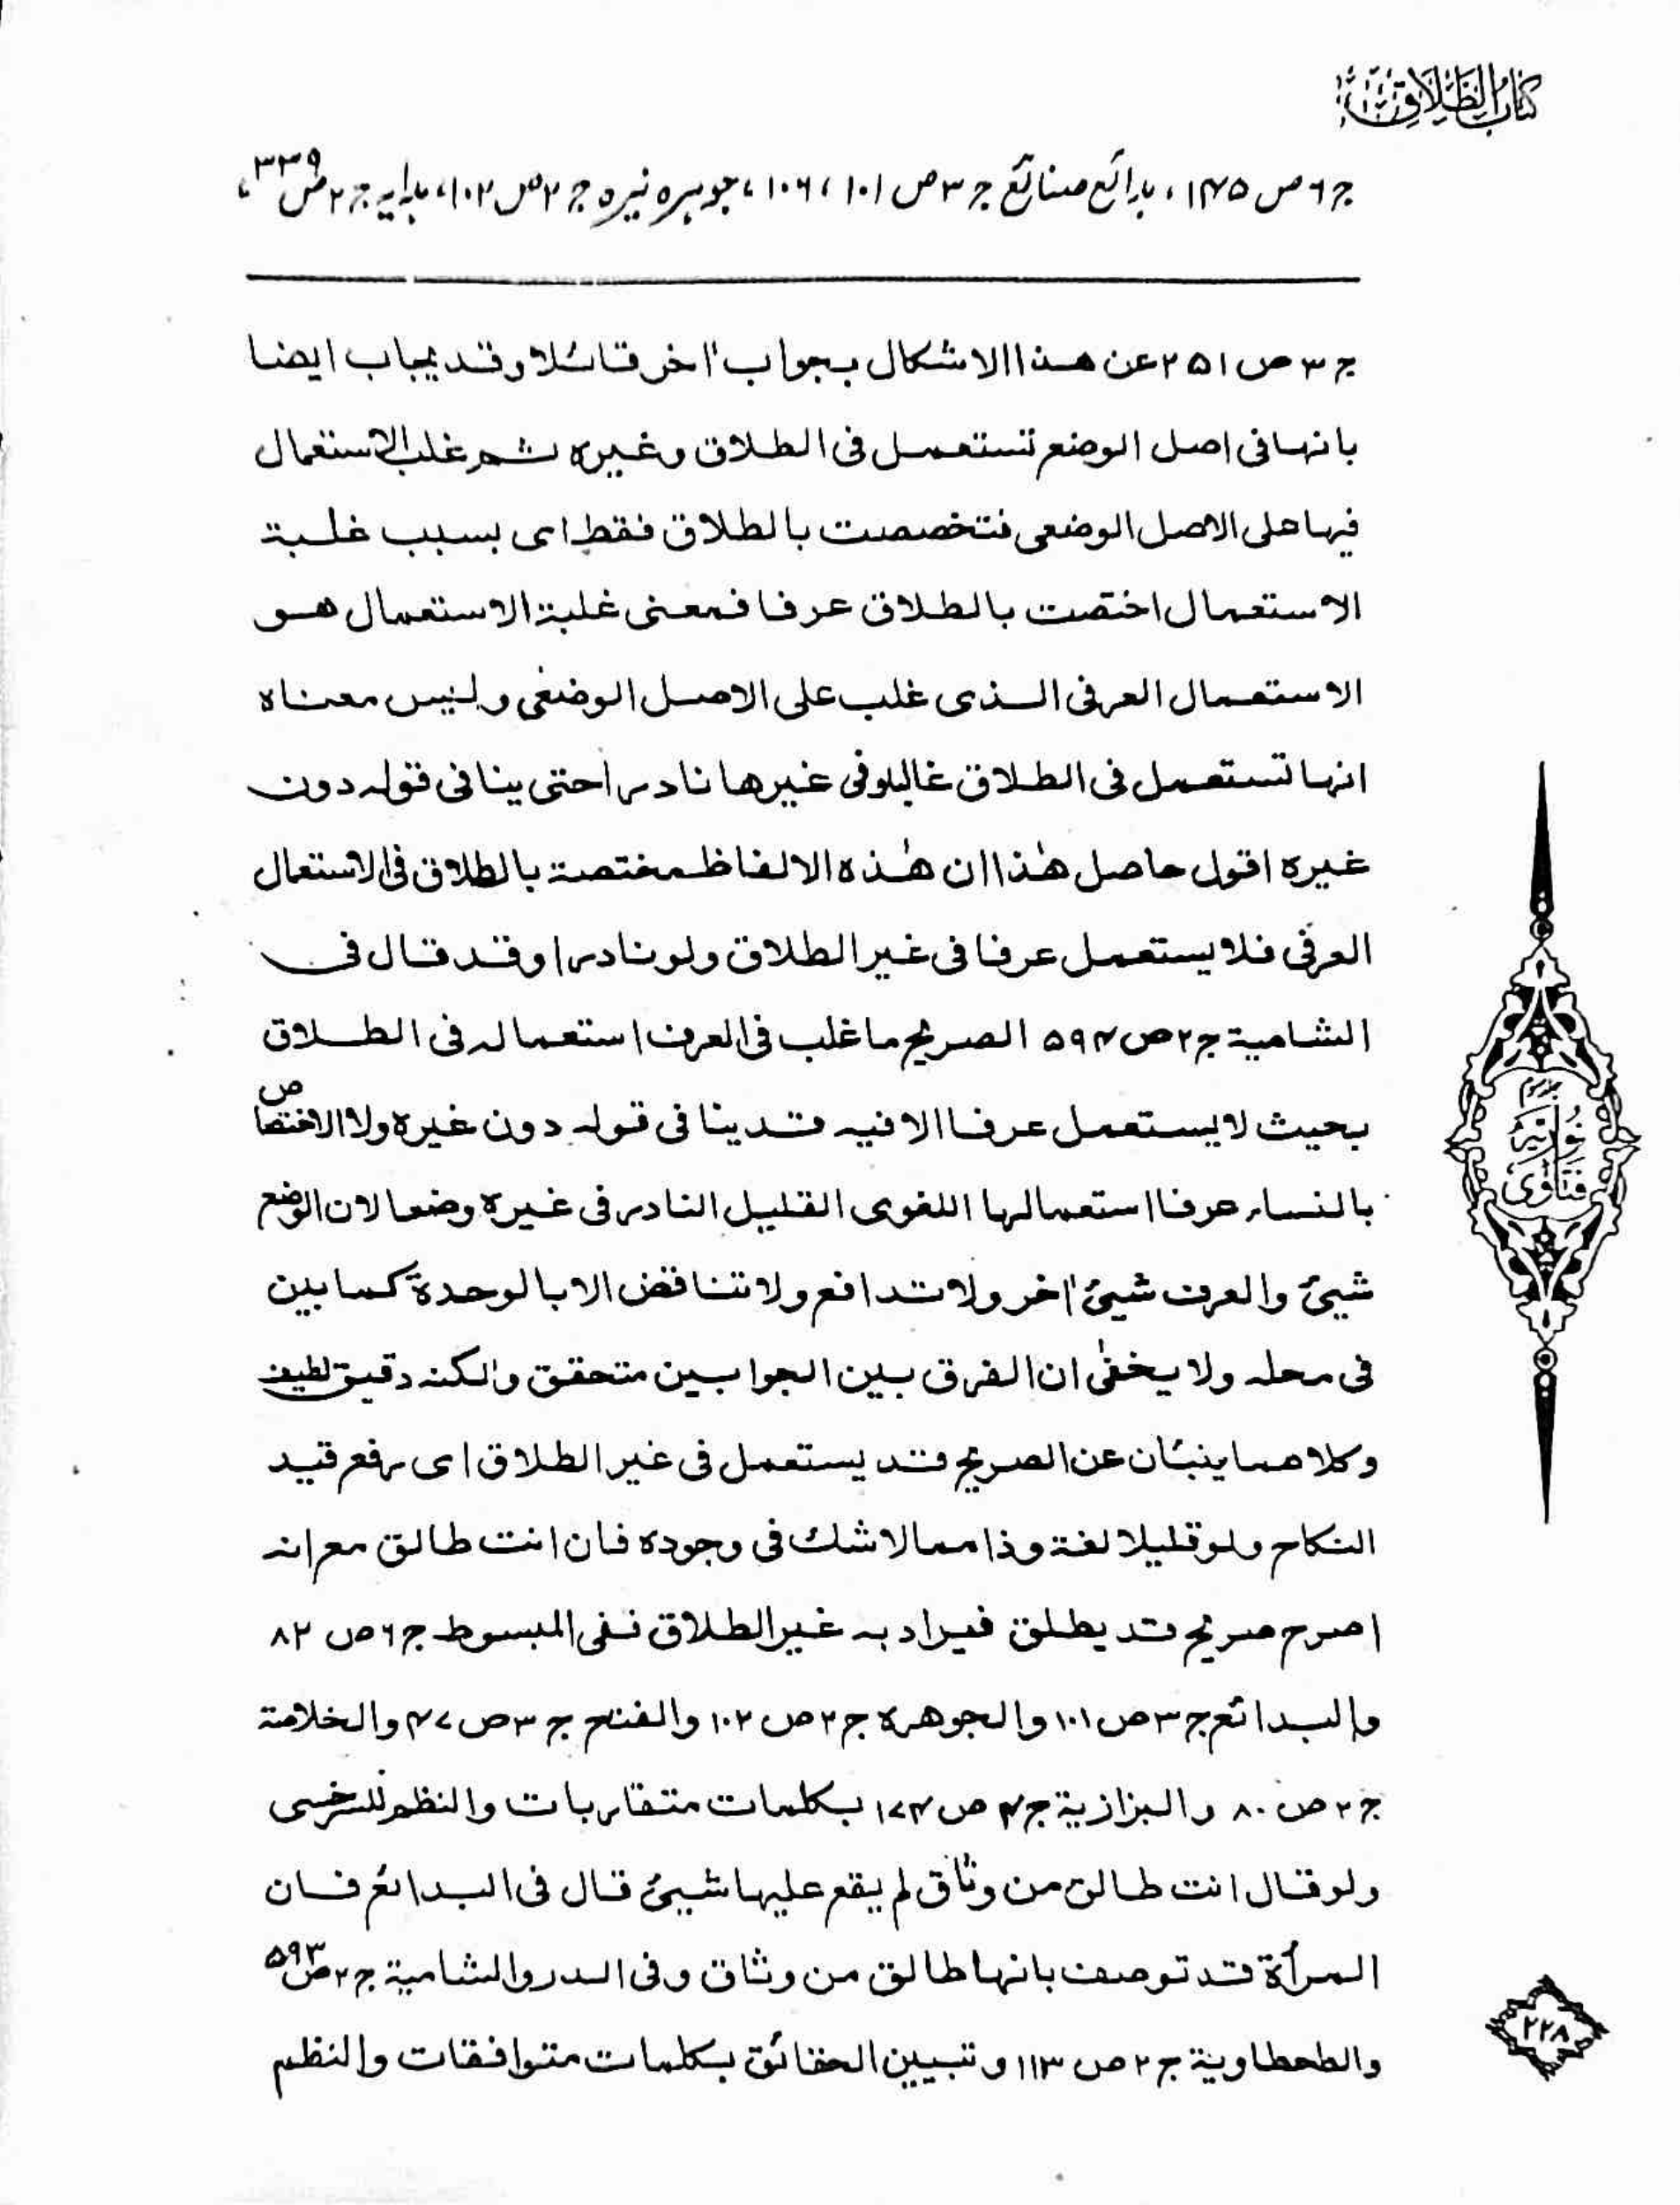 کتاب الطلاق
ج ٦ ص ١٤٥، بدائع صنائع ج ٣ ص ١٠١، ١٠٦، جوہرہ نیرہ ج ٢ ص ١٠٢، ہدایہ ج ٢ ص ٣٣٩،
ج ٣ ص ٢٥١ عن هذا الاشكال بجواب اٰخر قائلا و قد يجاب ايضا
بانها فى اصل الوضع تستعمل فى الطلاق وغيره ثم غلب الاستعمال
فيها على الاصل الوضعى فتخصصت بالطلاق فقط اى بسبب غلبة
الاستعمال اختصت بالطلاق عرفا فمعنى غلبة الاستعمال هو
الاستعمال العرفى الذى غلب على الاصل الوضعى وليس معناه
انها تستعمل فى الطلاق غالبا وفى غيرها نادرا حتى ينافى قوله دون
غيره اقول حاصل هٰذا ان هٰذه الالفاظ مختصة بالطلاق فى الاستعمال
العرفى فلا يستعمل عرفا فى غير الطلاق ولو نادرا وقد قال فى
الشامية ج ٢ ص ٥٩٤ الصريح ما غلب فى العرف استعماله فى الطلاق
بحيث لا يستعمل عرفا الا فيه قد ينافى قوله دون غيره ولا الاختصاص
بالنساء عرفا استعمالها اللغوى القليل النادر فى غيره وضعا لان الوضع
شيئ والعرف شيئ اٰخر ولا تدافع ولا تناقض الا بالوحدة كما بين
فى محله ولا يخفٰى ان الفرق بين الجوابين متحقق والكنه دقيق لطيف
وكلاهما ينبئان عن الصريح قد يستعمل فى غير الطلاق اى رفع قيد
النكاح ولو قليلا لغة وذا مما لا شك فى وجوده فان انت طالق مع انه
اصرح صريح قد يطلق فيراد به غير الطلاق نفى المبسوط ج ٦ ص ٨٢
والبدائع ج ٣ ص ١٠١ والجوهرة ج ٢ ص ١٠٢ والفتح ج ٣ ص ٤٧ والخلاصة
ج ٢ ص ٨٠ والبزازية ج ٤ ص ١٧٤ بكلمات متقاربات والنظم للسرخسى
ولو قال انت طالق من وثاق لم يقع عليها شيئ قال فى البدائع فان
المرأة قد توصف بانها طالق من وثاق وفى الدر والشامية ج ٢ ص ٥٩٣
والطحطاوية ج ٢ ص ١١٣ و تبيين الحقائق بكلمات متوافقات والنظم
فتاوٰى نوریہ
٢٢٨